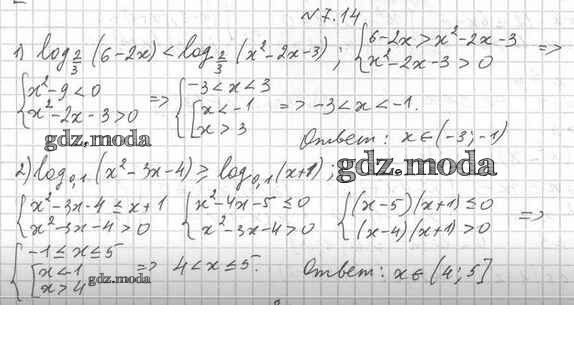 №7.14
1) log_{2/3} (6-2x) < log_{2/3} (x²-2x-3) ; { 6-2x > x²-2x-3 ; x²-2x-3 > 0 =>
{ x²-9<0 ; x²-2x-3>0 => { -3<x<3 ; [ x<-1 ; x>3 => -3<x<-1.
gdz.moda
Ответ: x∈(-3;-1)
2) log_{0,1} (x²-3x-4) ⩾ log_{0,1} (x+1) ;
gdz.moda
{ x²-3x-4 ≤ x+1 ; x²-3x-4>0 { x²-4x-5 ≤ 0 ; x²-3x-4>0 { (x-5)(x+1) ≤ 0 ; (x-4)(x+1)>0 =>
{ -1≤x≤5 ; [ x<-1 ; x>4 => 4<x≤5. Ответ: x∈(4;5]
gdz.moda